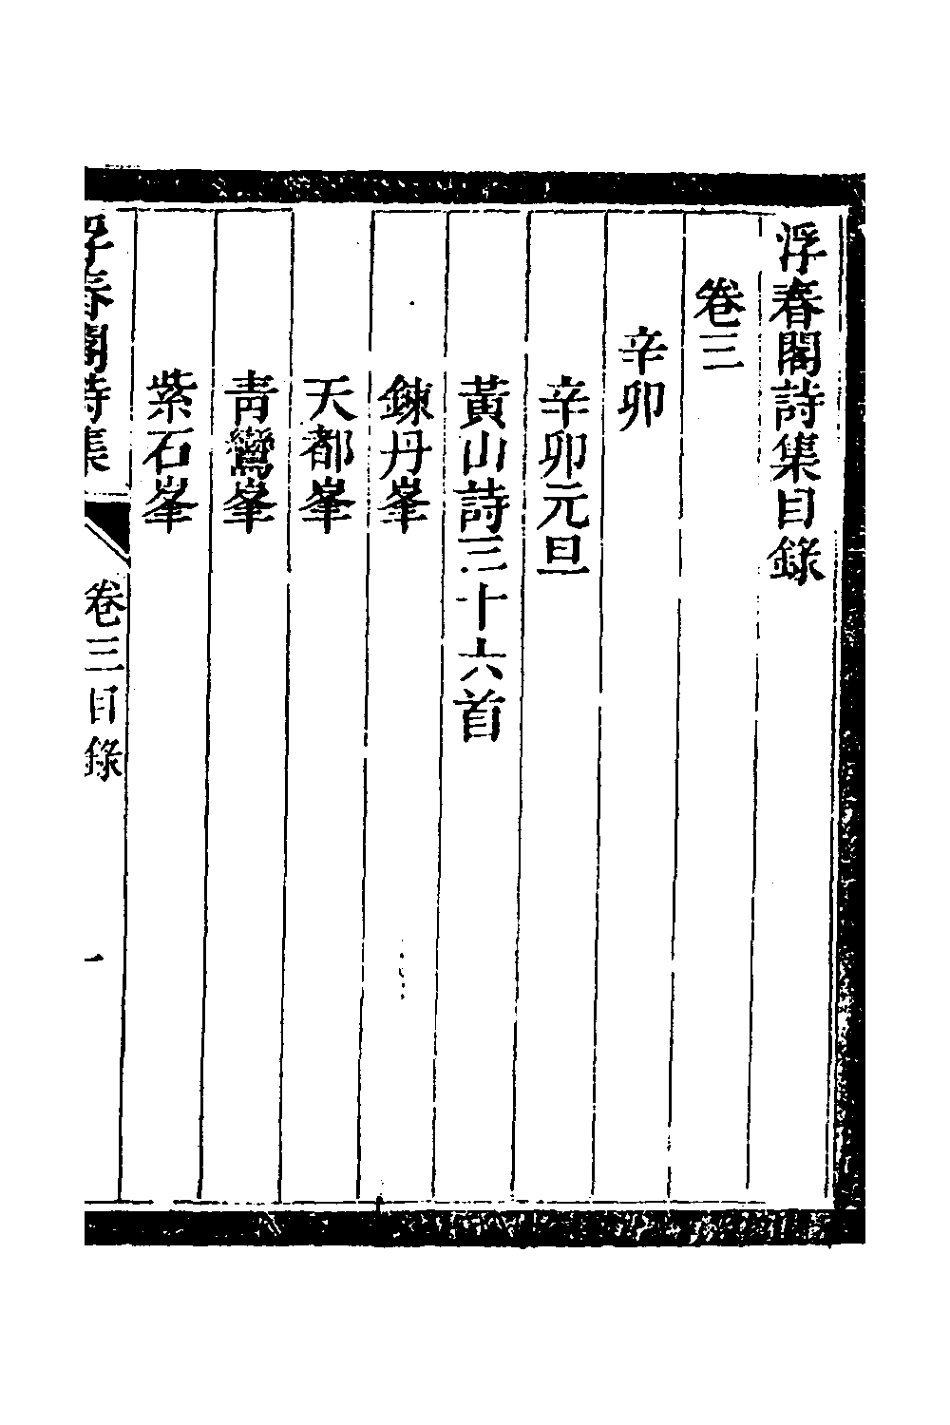 浮春閣詩集目錄
卷三
辛卯
辛卯元旦
黃山詩三十六首
鍊丹峯
天都峯
青鸞峯
紫石峯
浮春閣詩集
卷三目錄
一